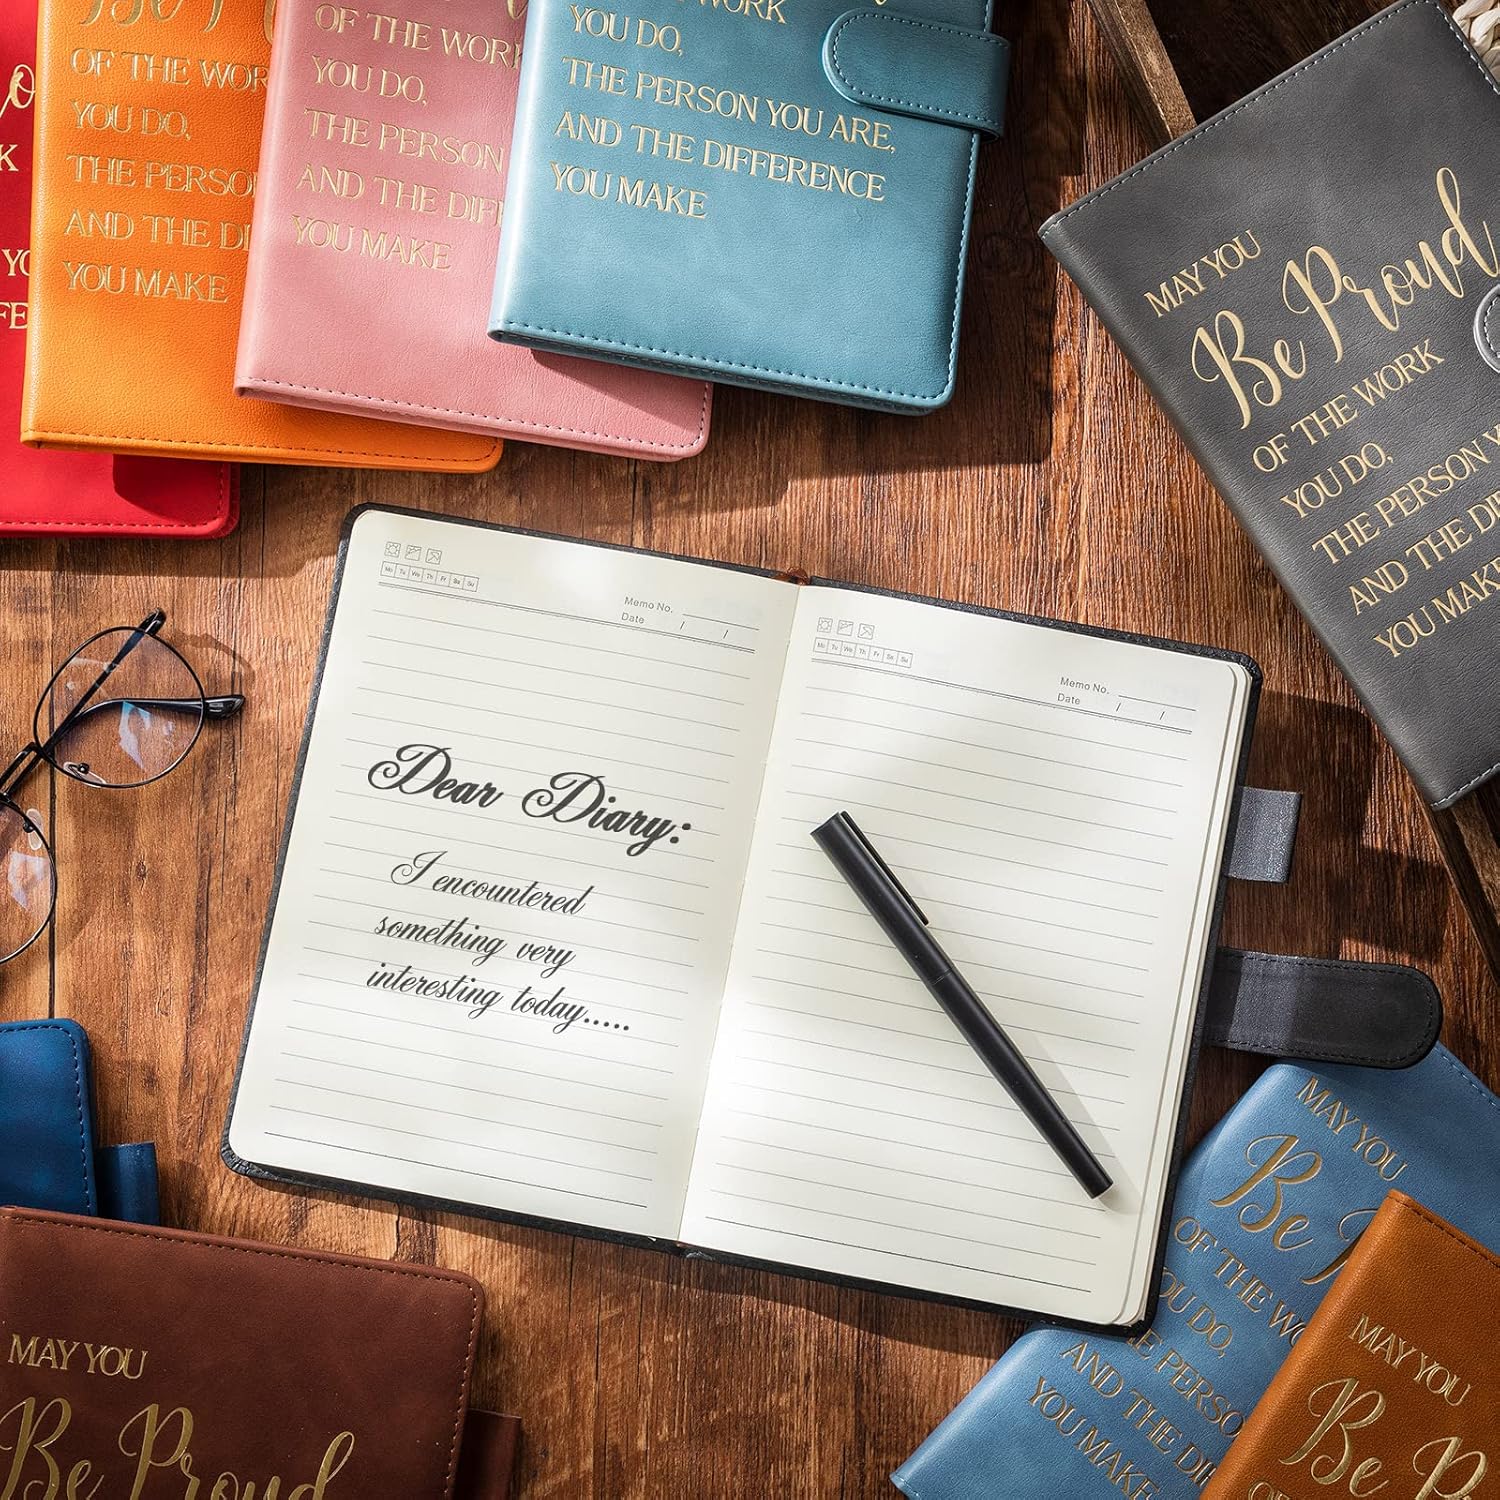 K
YO
FE
Be P
OF THE WOR
YOU DO,
THE PERSO
AND THE DI
YOU MAKE
OF THE WORK
YOU DO,
THE PERSON
AND THE DIFF
YOU MAKE
WORK
YOU DO,
THE PERSON YOU ARE,
AND THE DIFFERENCE
YOU MAKE
MAY YOU
Be Proud
OF THE WORK
YOU DO,
THE PERSON Y
AND THE DI
YOU MAKE
Mo Tu We Th Fr Sa Su
Memo No.
Date / /
Dear Diary:
I encountered
something very
interesting today.....
Mo Tu We Th Fr Sa Su
Memo No.
Date / /
MAY YOU
Be Proud
MAY YOU
Be
OF THE WO
OU DO,
E PERSO
AND THE DI
YOU MAKE
MAY YOU
Be P